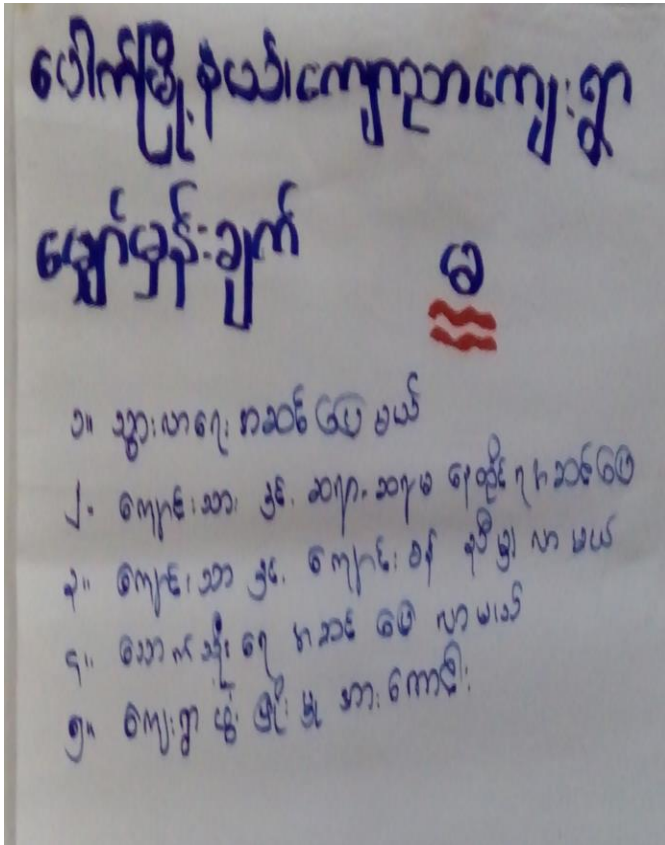 ပေါက်မြို့နယ်၊ကျေကညာကျေးရွာ
မျှော်မှန်းချက် မ
၁။ သွားလာရေး အဆင်ပြေမယ်
၂။ ကျောင်းသား နှင့် ဆရာ၊ ဆရာမ နေထိုင်ရ အဆင်ပြေ
၃။ ကျောင်းသား နှင့် ကျောင်း ခန် ညီမျှ လာမယ်
၄။ သောက်သုံးရေ အဆင်ပြေလာမယ်
၅။ ကျေးရွာ ဖွံ့ဖြိုးမှု အားကောင်း